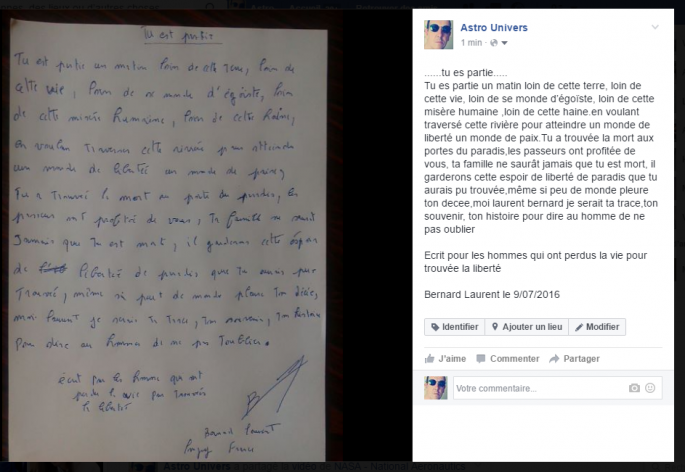 Tu est partie
Tu est partie un matin loin de cette terre, loin de
cette vie, loin de se monde d'égoïste, loin
de cette misère humaine, loin de cette haine,
en voulan traverser cette rivière pour atteindre
un monde de liberté un monde de paix,
Tu a trouvé la mort au porte du paradis, les
passeurs ont profité de vous, ta famille ne saurait
Jamais que tu est mort, il garderons cette espoir
de liberté de paradis que tu aurais peu
trouvé, même si peut de monde pleure ton décée,
moi laurent je serais ta trace, ton souvenir, ton histoire
pour dire au homme de ne pas l'oublier.
écrit pour les homme qui ont
perdu la vie pour trouvée
la liberté
Bernard Laurent
France
Astro Univers
1 min
......tu es partie.....
Tu es partie un matin loin de cette terre, loin de
cette vie, loin de se monde d'égoïste, loin de cette
misère humaine ,loin de cette haine.en voulant
traversé cette rivière pour atteindre un monde de
liberté un monde de paix.Tu a trouvée la mort aux
portes du paradis,les passeurs ont profitée de
vous, ta famille ne saurât jamais que tu est mort, il
garderons cette espoir de liberté de paradis que tu
aurais pu trouvée,même si peu de monde pleure
ton decee,moi laurent bernard je serait ta trace,ton
souvenir, ton histoire pour dire au homme de ne
pas oublier
Ecrit pour les hommes qui ont perdus la vie pour
trouvée la liberté
Bernard Laurent le 9/07/2016
Identifier Ajouter un lieu Modifier
J'aime Commenter Partager
Votre commentaire...
Astro Univers a partagé la vidéo de NASA - National Aeronautics